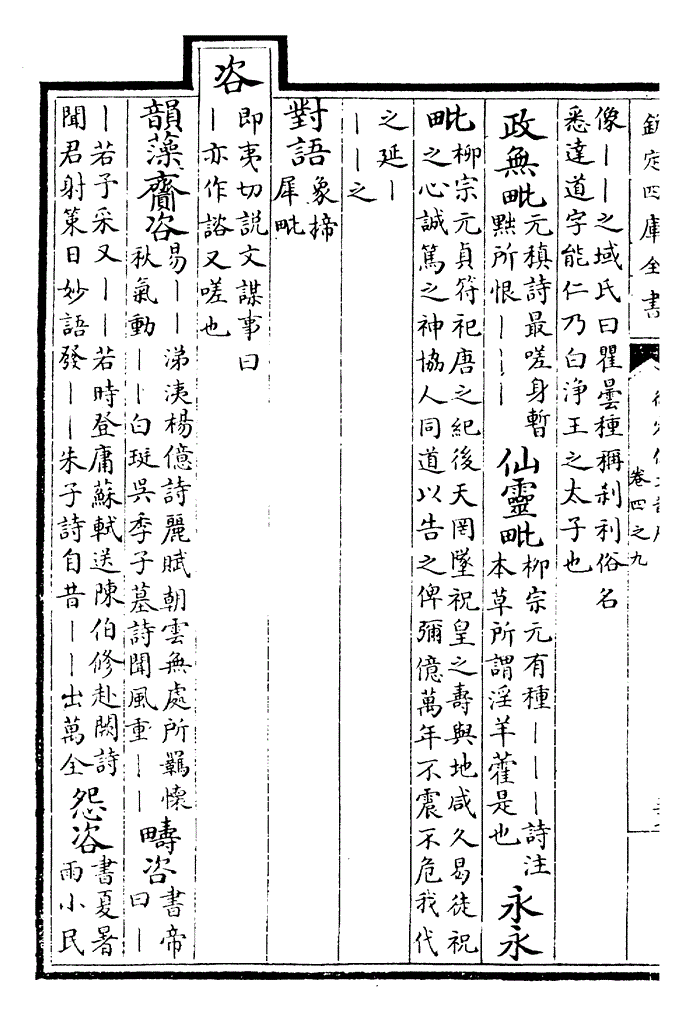 欽定四庫全書
卷四之九
像丨丨之域氏曰瞿曇種稱刹利俗名
悉達道字能仁乃白净王之太子也
政無毗 元稹詩最嗟身暫
黙所恨丨丨丨
仙靈毗 柳宗元有種丨丨丨詩注
本草所謂淫羊藿是也
永永
毗 柳宗元貞符祀唐之紀後天罔墜祝皇之壽與地咸久曷徒祝
之心誠篤之神協人同道以告之俾彌億萬年不震不危我代
之延丨
丨丨之
對語 象揥
犀毗
咨
即夷切説文謀事曰
丨亦作諮又嗟也
韻藻 齎咨 易丨丨涕洟楊億詩麗賦朝雲無處所羈懷
秋氣動丨丨白珽吳季子墓詩聞風重丨丨
疇咨 書帝
曰丨
丨若予采又丨丨若時登庸蘇軾送陳伯修赴闕詩
聞君射策日妙語發丨丨朱子詩自昔丨丨出萬全
怨咨 書夏暑
雨小民